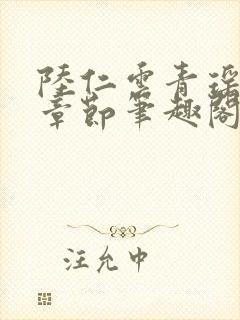 陸仁雲青瑤
章節筆趣閣
汪允中